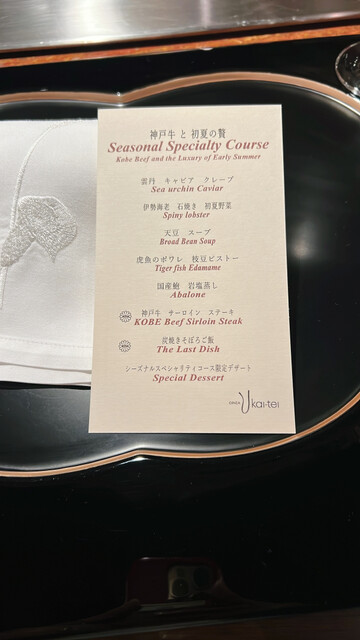 神戸牛 と 初夏の贅
Seasonal Specialty Course
Kobe Beef and the Luxury of Early Summer
雲丹 キャビア クレープ
Sea urchin Caviar
伊勢海老 石焼き 初夏野菜
Spiny lobster
天豆 スープ
Broad Bean Soup
虎魚のポワレ 枝豆ピストー
Tiger fish Edamame
国産鮑 岩塩蒸し
Abalone
神戸牛 サーロイン ステーキ
KOBE Beef Sirloin Steak
炭焼きそぼろご飯
The Last Dish
シーズナルスペシャリティコース限定デザート
Special Dessert
GINZA Ukai-tei